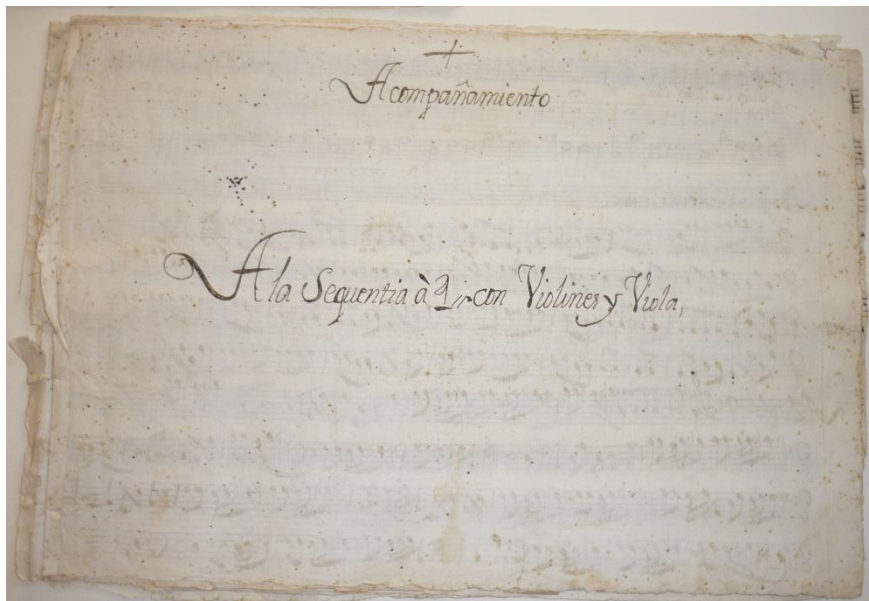 +
Acompañamiento
A la Sequentia à 4 con Violines y Viola,